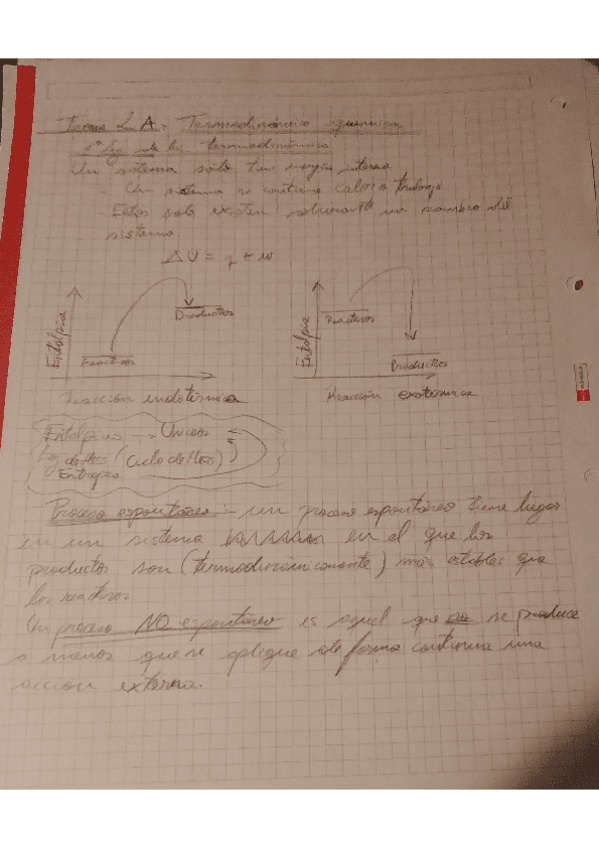 Tema 2A: Termodinámica química
1ª ley de la termodinámica
Un sistema sólo tiene energía interna
- Un sistema no contiene calor o trabajo
- Estos solo existen solamente un cambio del
sistema.
ΔU = q + w
Entalpía
Reactivos
Productos
Reacción endotérmica
Entalpía
Reactivos
Productos
Reacción exotérmica
Entalpías → Uniones
Ley de Hess (Ciclo de Hess)
Entropía
Proceso espontáneo:- un proceso espontáneo tiene lugar
en un sistema en el que los
productos son (termodinámicamente) más estables que
los reactivos
Un proceso NO espontáneo es aquel que no se produce
a menos que se aplique de forma continua una
acción externa.